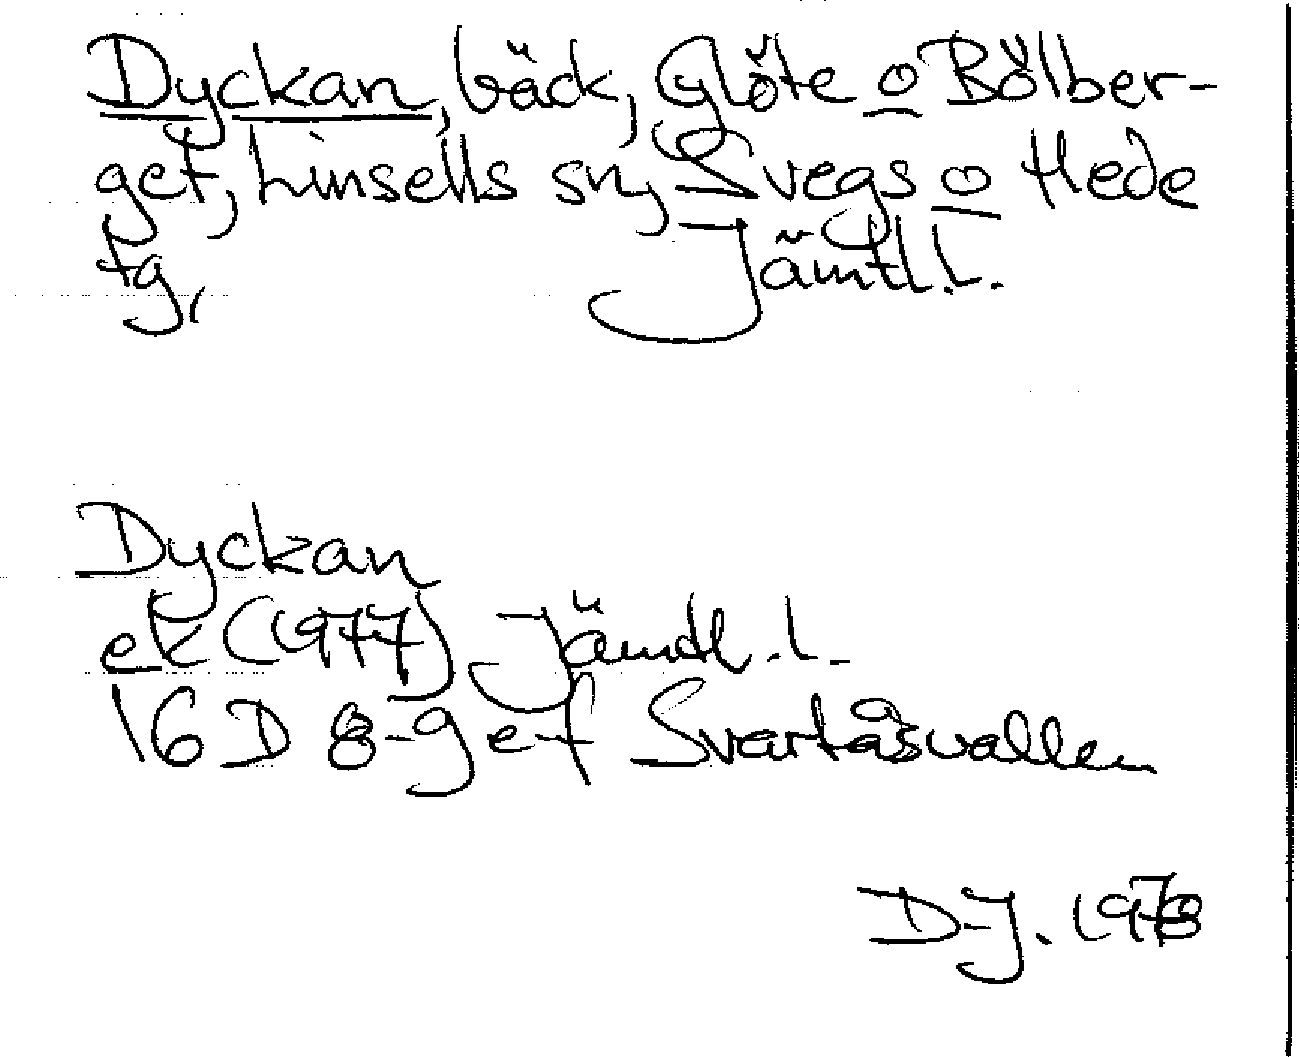 Dyckan, bäck, Glöte o Bölber-
get, Linsells sn, Svegs o Hede
tg, Jämtl. l.
Dyckan
ek (1977) Jämtl. l.
16 D 8-9 e-f Svartåsvallen
D-J. 1978